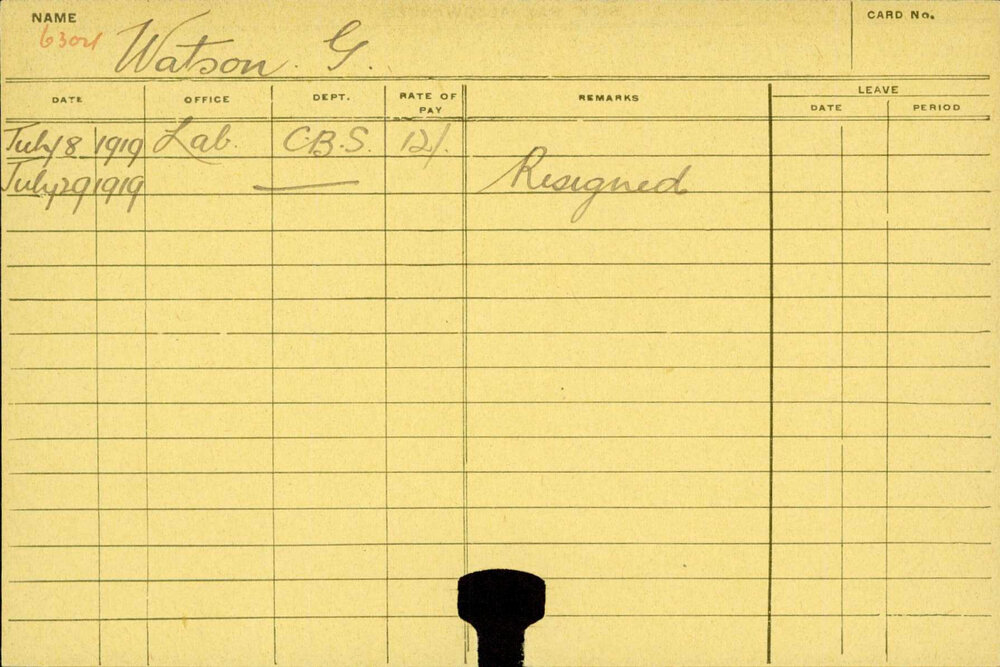 NAME
CARD No.
6304
Watson. G.
DATE OFFICE DEPT. RATE OF PAY REMARKS LEAVE
DATE PERIOD
July 8 1919 Lab. C.B.S. 12/.
July 29 1919 — Resigned